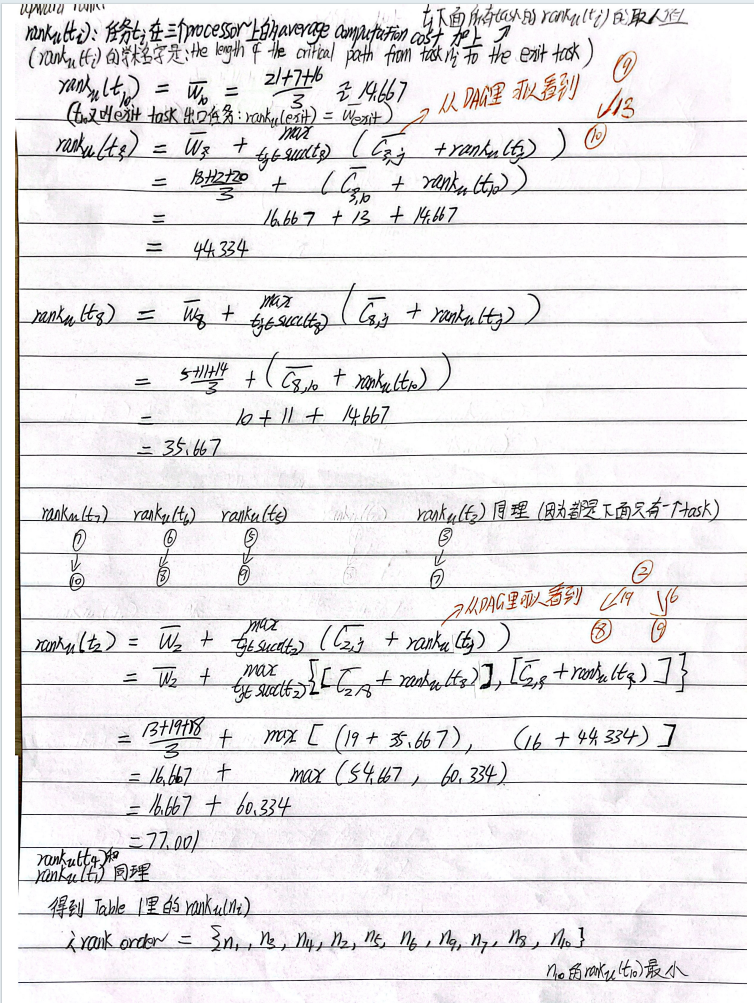 upward rank:
t下面所有task的rank_u(t_i)的取max
rank_u(t_i): 任务t_i 在三个processor上的average computation cost 加上 ↗
(rank_u(t_i)的学术名字是: the length of the critical path from task n_i to the exit task)
rank_u(t_10) = w̄_10 = (21+7+16)/3 ≈ 14.667
(t_10又叫exit task 出口任务: rank_u(exit) = w̄_exit)
→ 从DAG里可以看到
⑨
↙13
⑩
rank_u(t_9) = w̄_9 + max t_j∈succ(t_9) (C̄_9,j + rank_u(t_j))
= (18+12+20)/3 + (C̄_9,10 + rank_u(t_10))
= 16.667 + 13 + 14.667
= 44.334
rank_u(t_8) = w̄_8 + max t_j∈succ(t_8) (C̄_8,j + rank_u(t_j))
= (5+11+14)/3 + (C̄_8,10 + rank_u(t_10))
= 10 + 11 + 14.667
= 35.667
rank_u(t_7) rank_u(t_6) rank_u(t_5) rank_u(t_3) 同理 (因为都是下面只有一个task)
⑦ ⑥ ⑤ ③
↓ ↓ ↓ ↓
⑩ ⑧ ⑨ ⑦
→从DAG里可以看到
②
↙19 ↘16
⑧ ⑨
rank_u(t_2) = w̄_2 + max t_j∈succ(t_2) (C̄_2,j + rank_u(t_j))
= w̄_2 + max t_j∈succ(t_2) {[C̄_2,8 + rank_u(t_8)], [C̄_2,9 + rank_u(t_9)]}
= (13+19+18)/3 + max [(19 + 35.667), (16 + 44.334)]
= 16.667 + max (54.667, 60.334)
= 16.667 + 60.334
= 77.001
rank_u(t_4)和
rank_u(t_1) 同理
得到 Table 1里的rank_u(n_i)
∴rank order = {n_1, n_3, n_4, n_2, n_5, n_6, n_9, n_7, n_8, n_10}
n_10的rank_u(t_10)最小